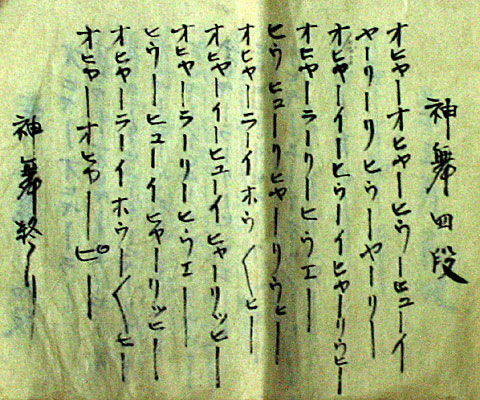 神舞四段
オヒャーオヒャーヒウーヒューイ
ヤーリーリヒウーヤーリー
オヒャーイーヒウーイヒャーリウヒー
オヒャーラーリーヒウエー
ヒウヒューリヒャーリウヒー
オヒャーライホウ〱ヒー
オヒャーイーヒューイヒャーリッヒー
オヒャーラーリーヒウエー
ヒウーヒューイヒャーリッヒー
オヒャーラーイホウー〱ヒー
オヒャーオヒャーピー
神舞終り